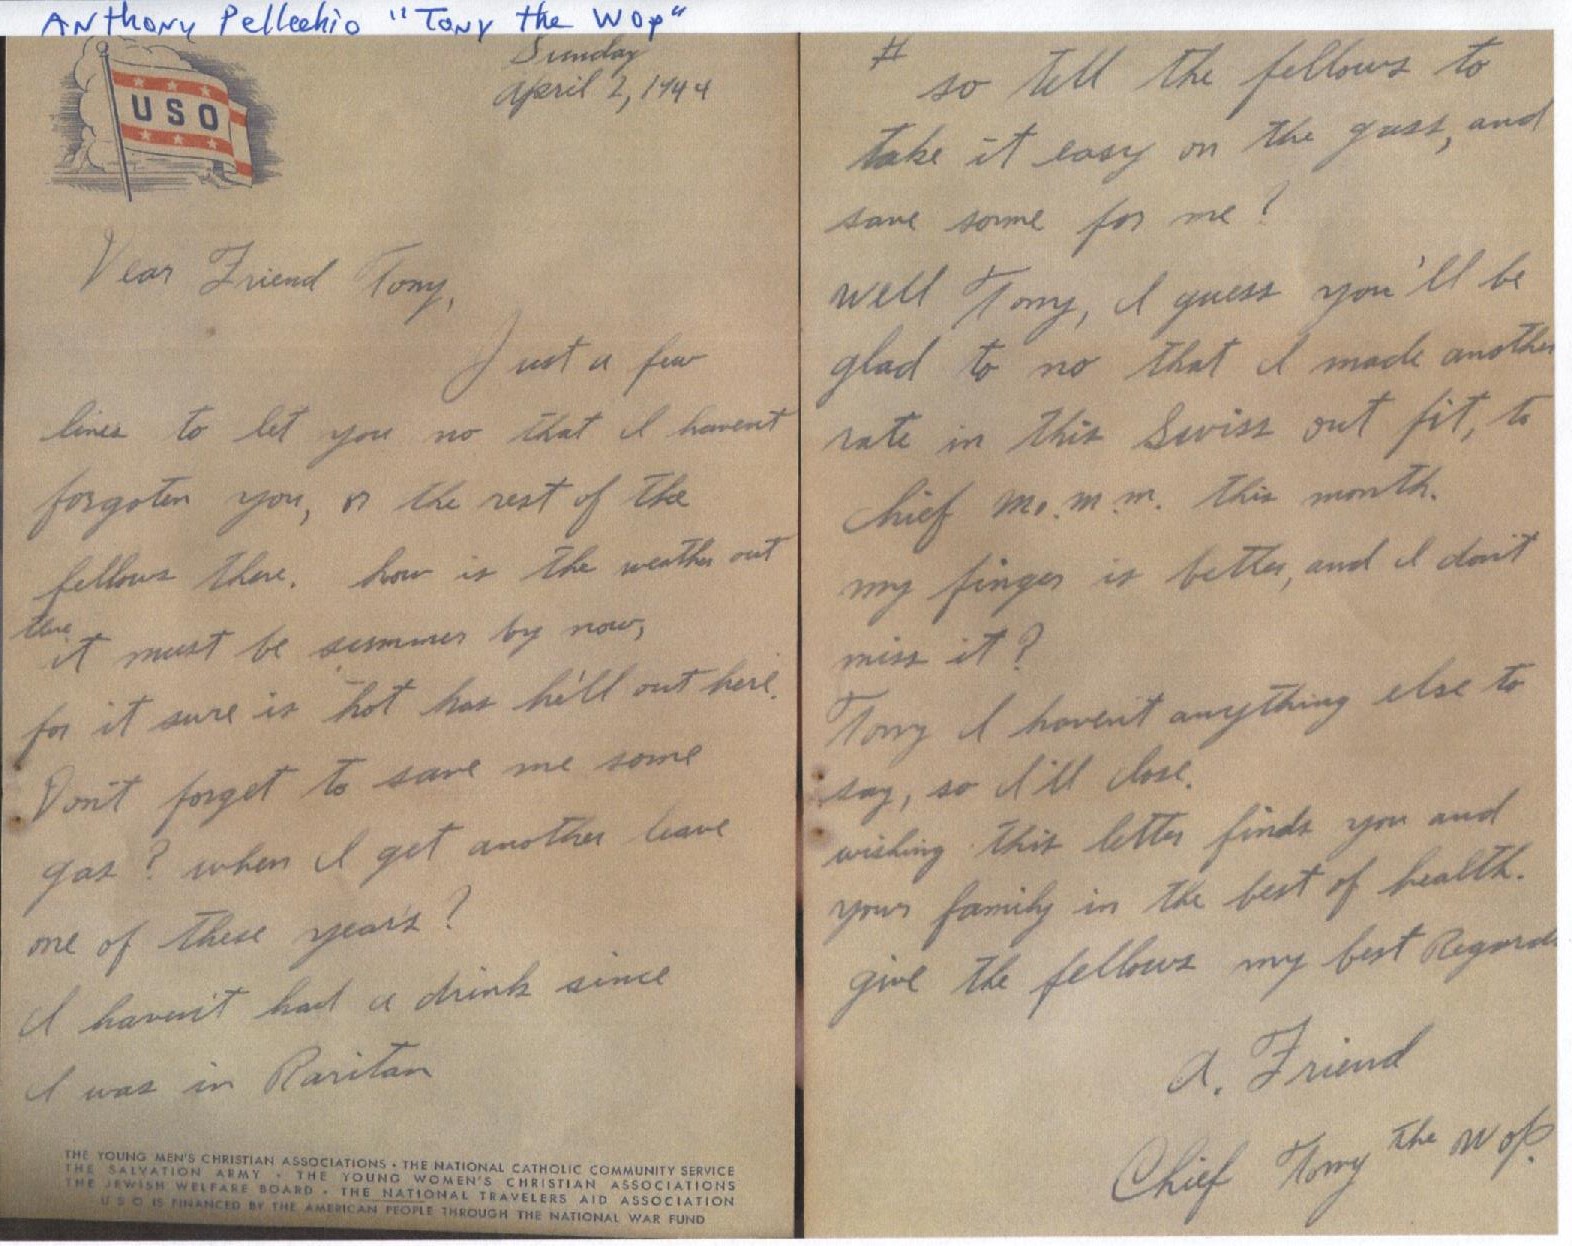 Anthony Pellechio "Tony the Wop"
Sunday
April 2, 1944
USO
Dear Friend Tony,
Just a few
lines to let you no that I havent
forgoten you, or the rest of the
fellows there. how is the weather out
there
it must be summer by now,
for it sure is hot has he'll out here.
Don't forget to save me some
gas? when I get another leave
one of these year's?
I haven't had a drink since
I was in Raritan
THE YOUNG MEN'S CHRISTIAN ASSOCIATIONS • THE NATIONAL CATHOLIC COMMUNITY SERVICE
THE SALVATION ARMY • THE YOUNG WOMEN'S CHRISTIAN ASSOCIATIONS
THE JEWISH WELFARE BOARD • THE NATIONAL TRAVELERS AID ASSOCIATION
USO IS FINANCED BY THE AMERICAN PEOPLE THROUGH THE NATIONAL WAR FUND
#
so tell the fellows to
take it easy on the gass, and
save some for me?
well Tony, I guess you'll be
glad to no that I made another
rate in this Swiss out fit, to
chief Mo.m.m. this month.
my finger is better, and I don't
miss it?
Tony I haven't anything else to
say, so I'll close.
wishing this letter finds you and
your family in the best of health.
give the fellows my best Regards
A. Friend
Chief Tony the Wop.